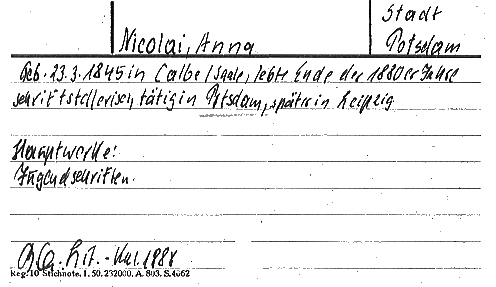 Stadt
Nicolai, Anna Potsdam
Geb. 23.3.1845 in Calbe/Saale, lebte Ende der 1880er Jahre
schriftstellerisch tätig in Potsdam, später in Leipzig
Hauptwerke:
Jugendschriften.
Lit.-Kal. 1988
Reg. 10 Stichnote. I. 50. 232000. A. 803. S. 4062